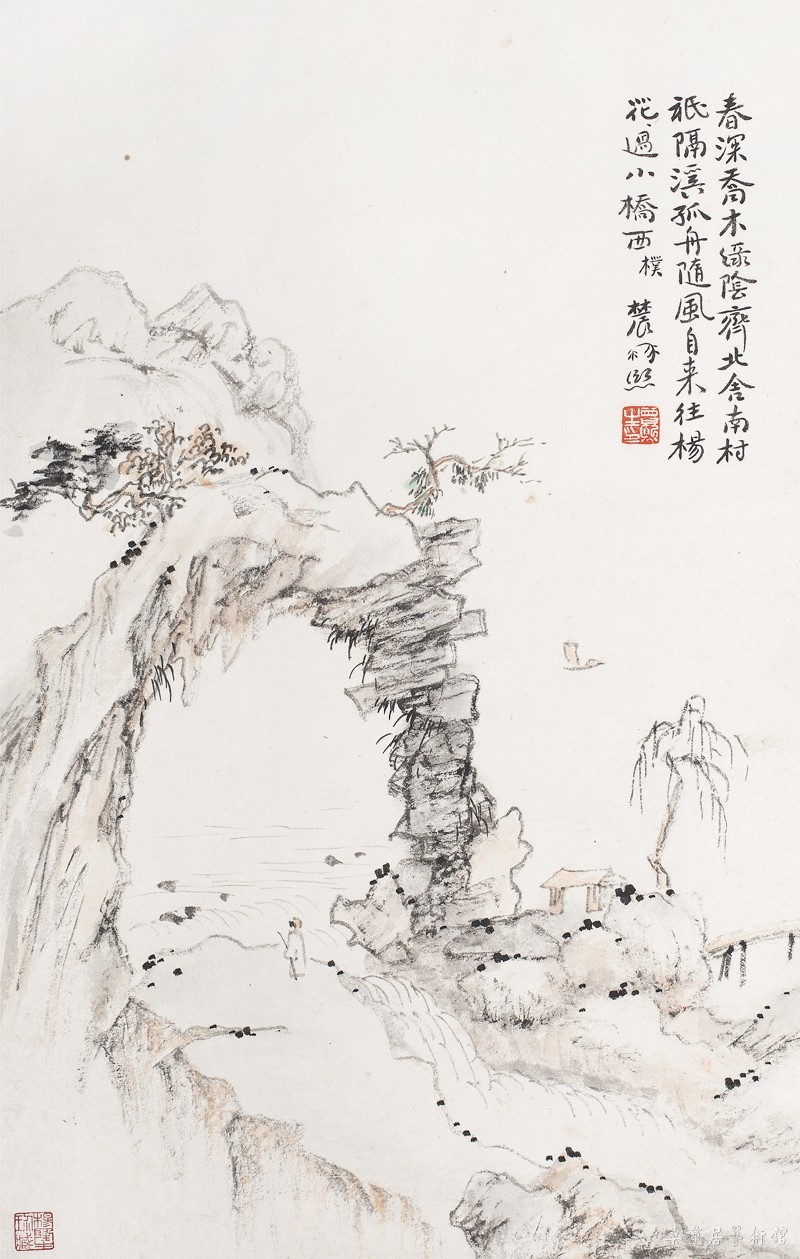 春深喬木綠陰齊北舍南村
祇隔溪孤舟隨風自来往楊
花過小橋西樸農熙
居藝術館